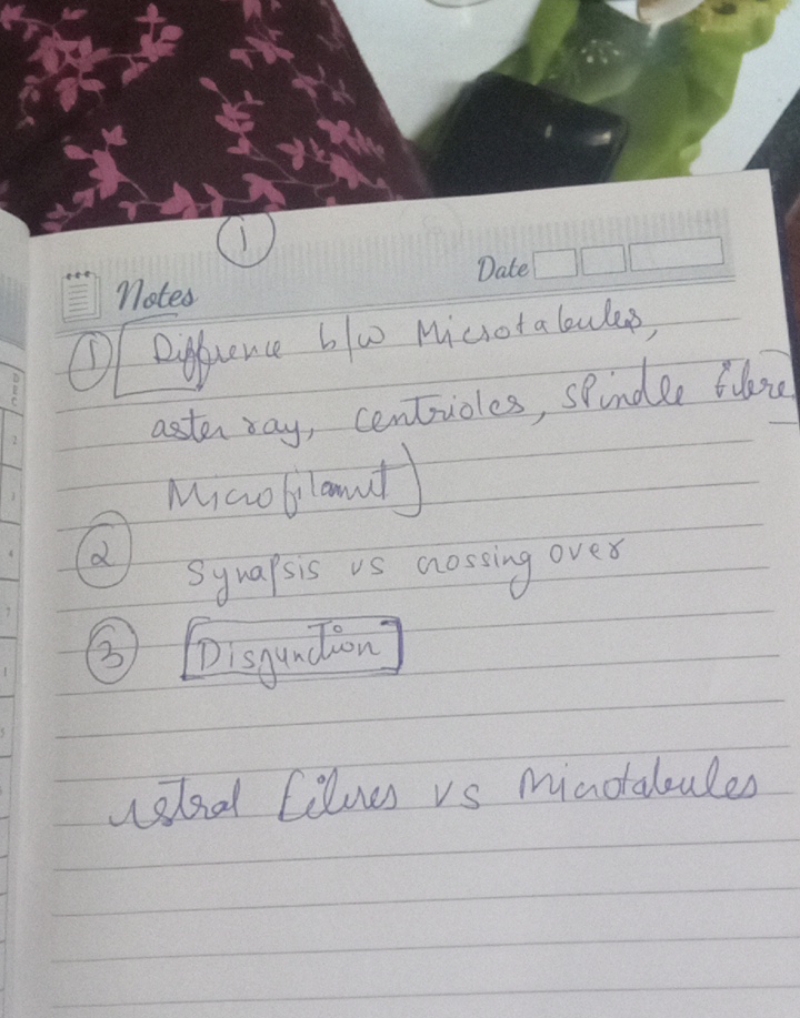 1
Notes
Date
① Diffrence b/w Microtabules,
aster ray, centrioles, spindle fibre
Microfilamnt]
② Synapsis vs crossing over
③ [Disjunction]
astral fibres vs Microtabules